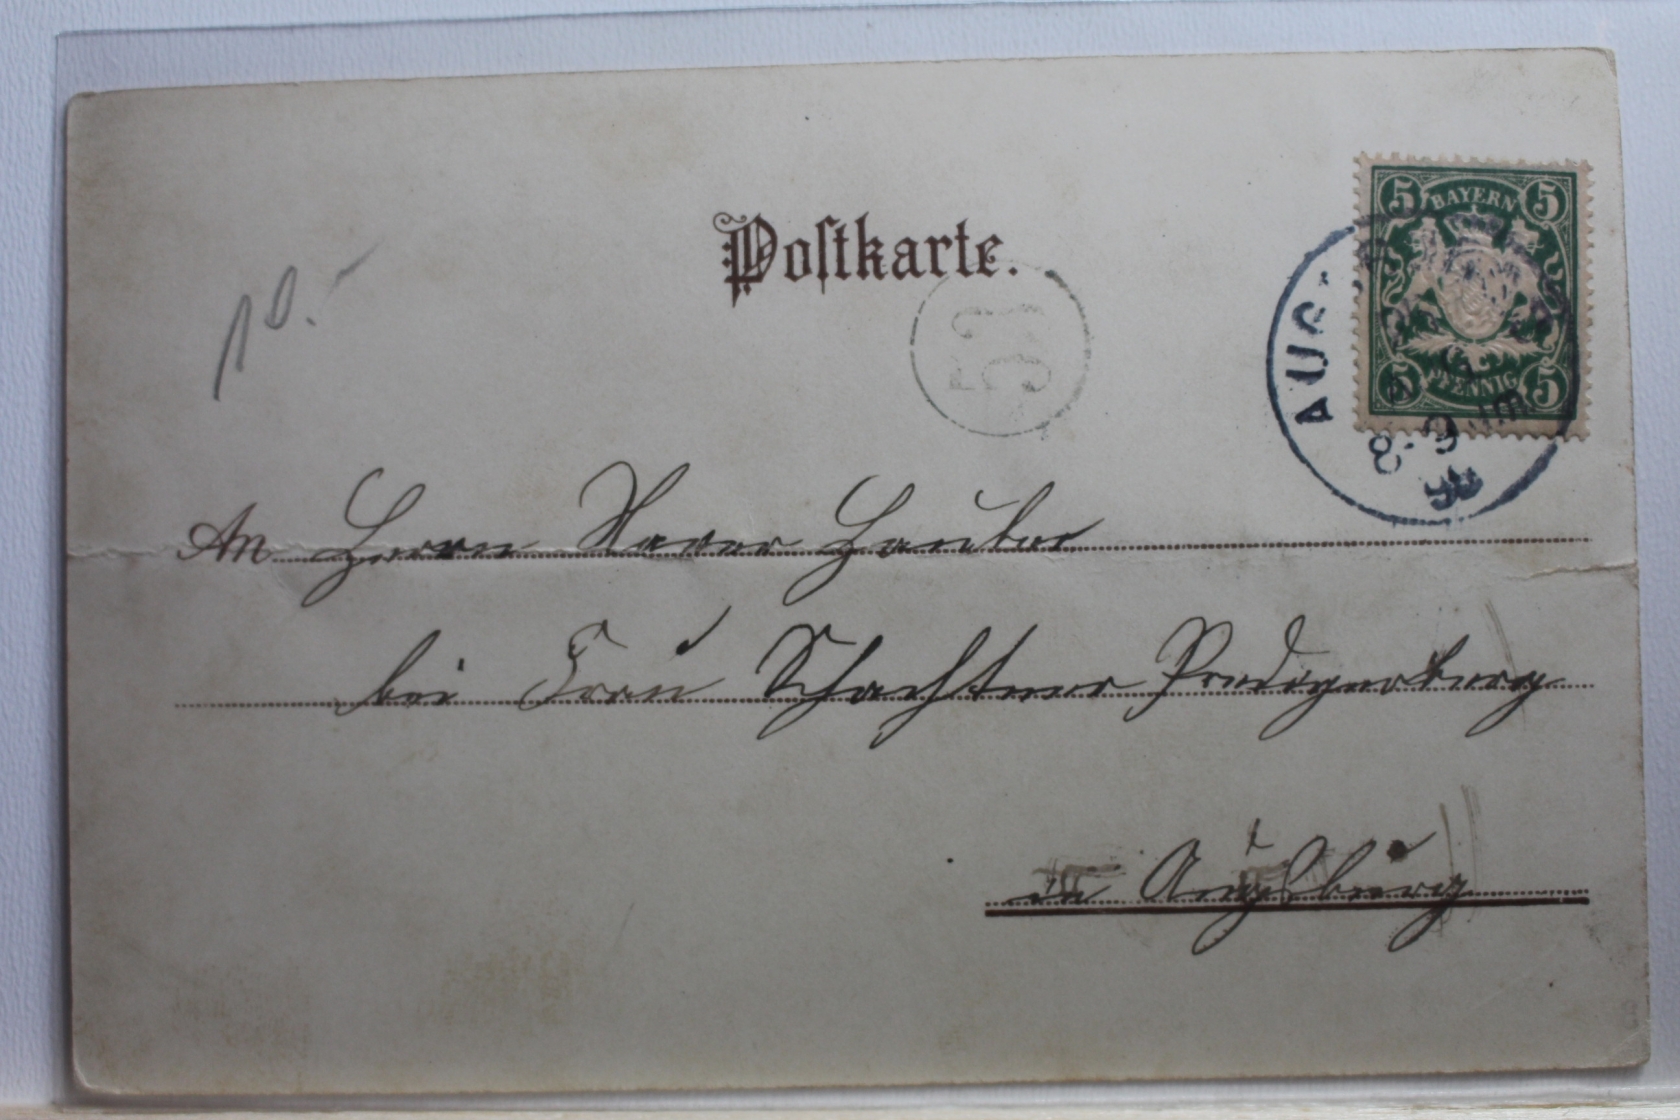 Postkarte.
10.-
53
5 BAYERN 5
5 PFENNIG 5
AUG
8-9
98
An Herrn Xaver Hauber
bei Frau Schachtner Predigerberg
in Augsburg